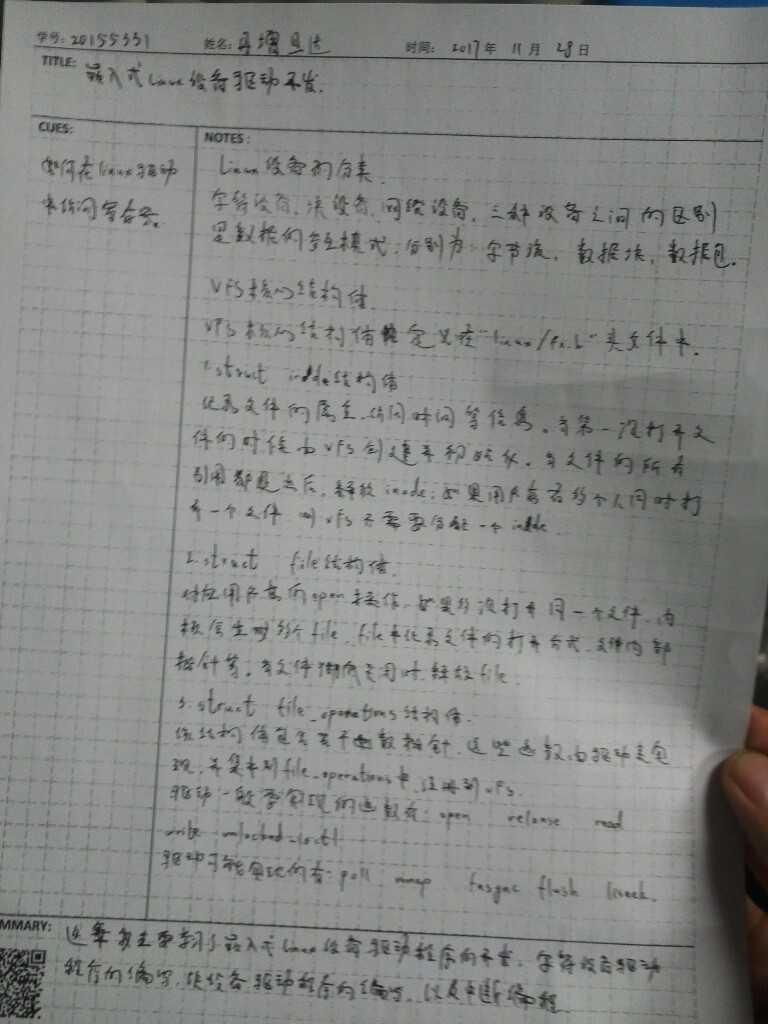 学号: 20155331 姓名: 丹增旦达 时间: 2017年 11月 28日
TITLE: 嵌入式Linux设备驱动开发.
CUES:
如何在linux驱动
中访问寄存器
NOTES:
Linux设备的分类.
字符设备, 块设备, 网络设备, 三种设备之间的区别
是数据的交互模式. 分别为: 字节流, 数据块, 数据包.
VFS核心结构体.
VFS核心结构体 定义在"linux/fs.h"头文件中.
1.struct inode结构体
代表文件的属主, 访问时间等信息. 当第一次打开文
件的时候由VFS创建并初始化. 当文件的所有
引用都退出后, 释放inode; 如果用户层有多个人同时打
开一个文件 则vfs只需要分配一个inode
2.struct file结构体.
对应用户层的open操作. 如果多次打开同一个文件, 内
核会生成多个file. file中代表文件的打开方式, 文件内部
指针等. 当文件彻底关闭时, 释放file.
3.struct file_operations结构体.
该结构体包含若干函数指针, 这些函数由驱动来实
现, 并集中到file_operations中, 注册到vfs.
驱动一般要实现的函数有: open release read
write unlocked_ioctl
驱动可能实现的有: poll mmap fasync flush llseek.
MMARY:
这章我主要学习了嵌入式Linux设备驱动程序的开发, 字符设备驱动
程序的编写, 块设备驱动程序的编写, 以及中断编程